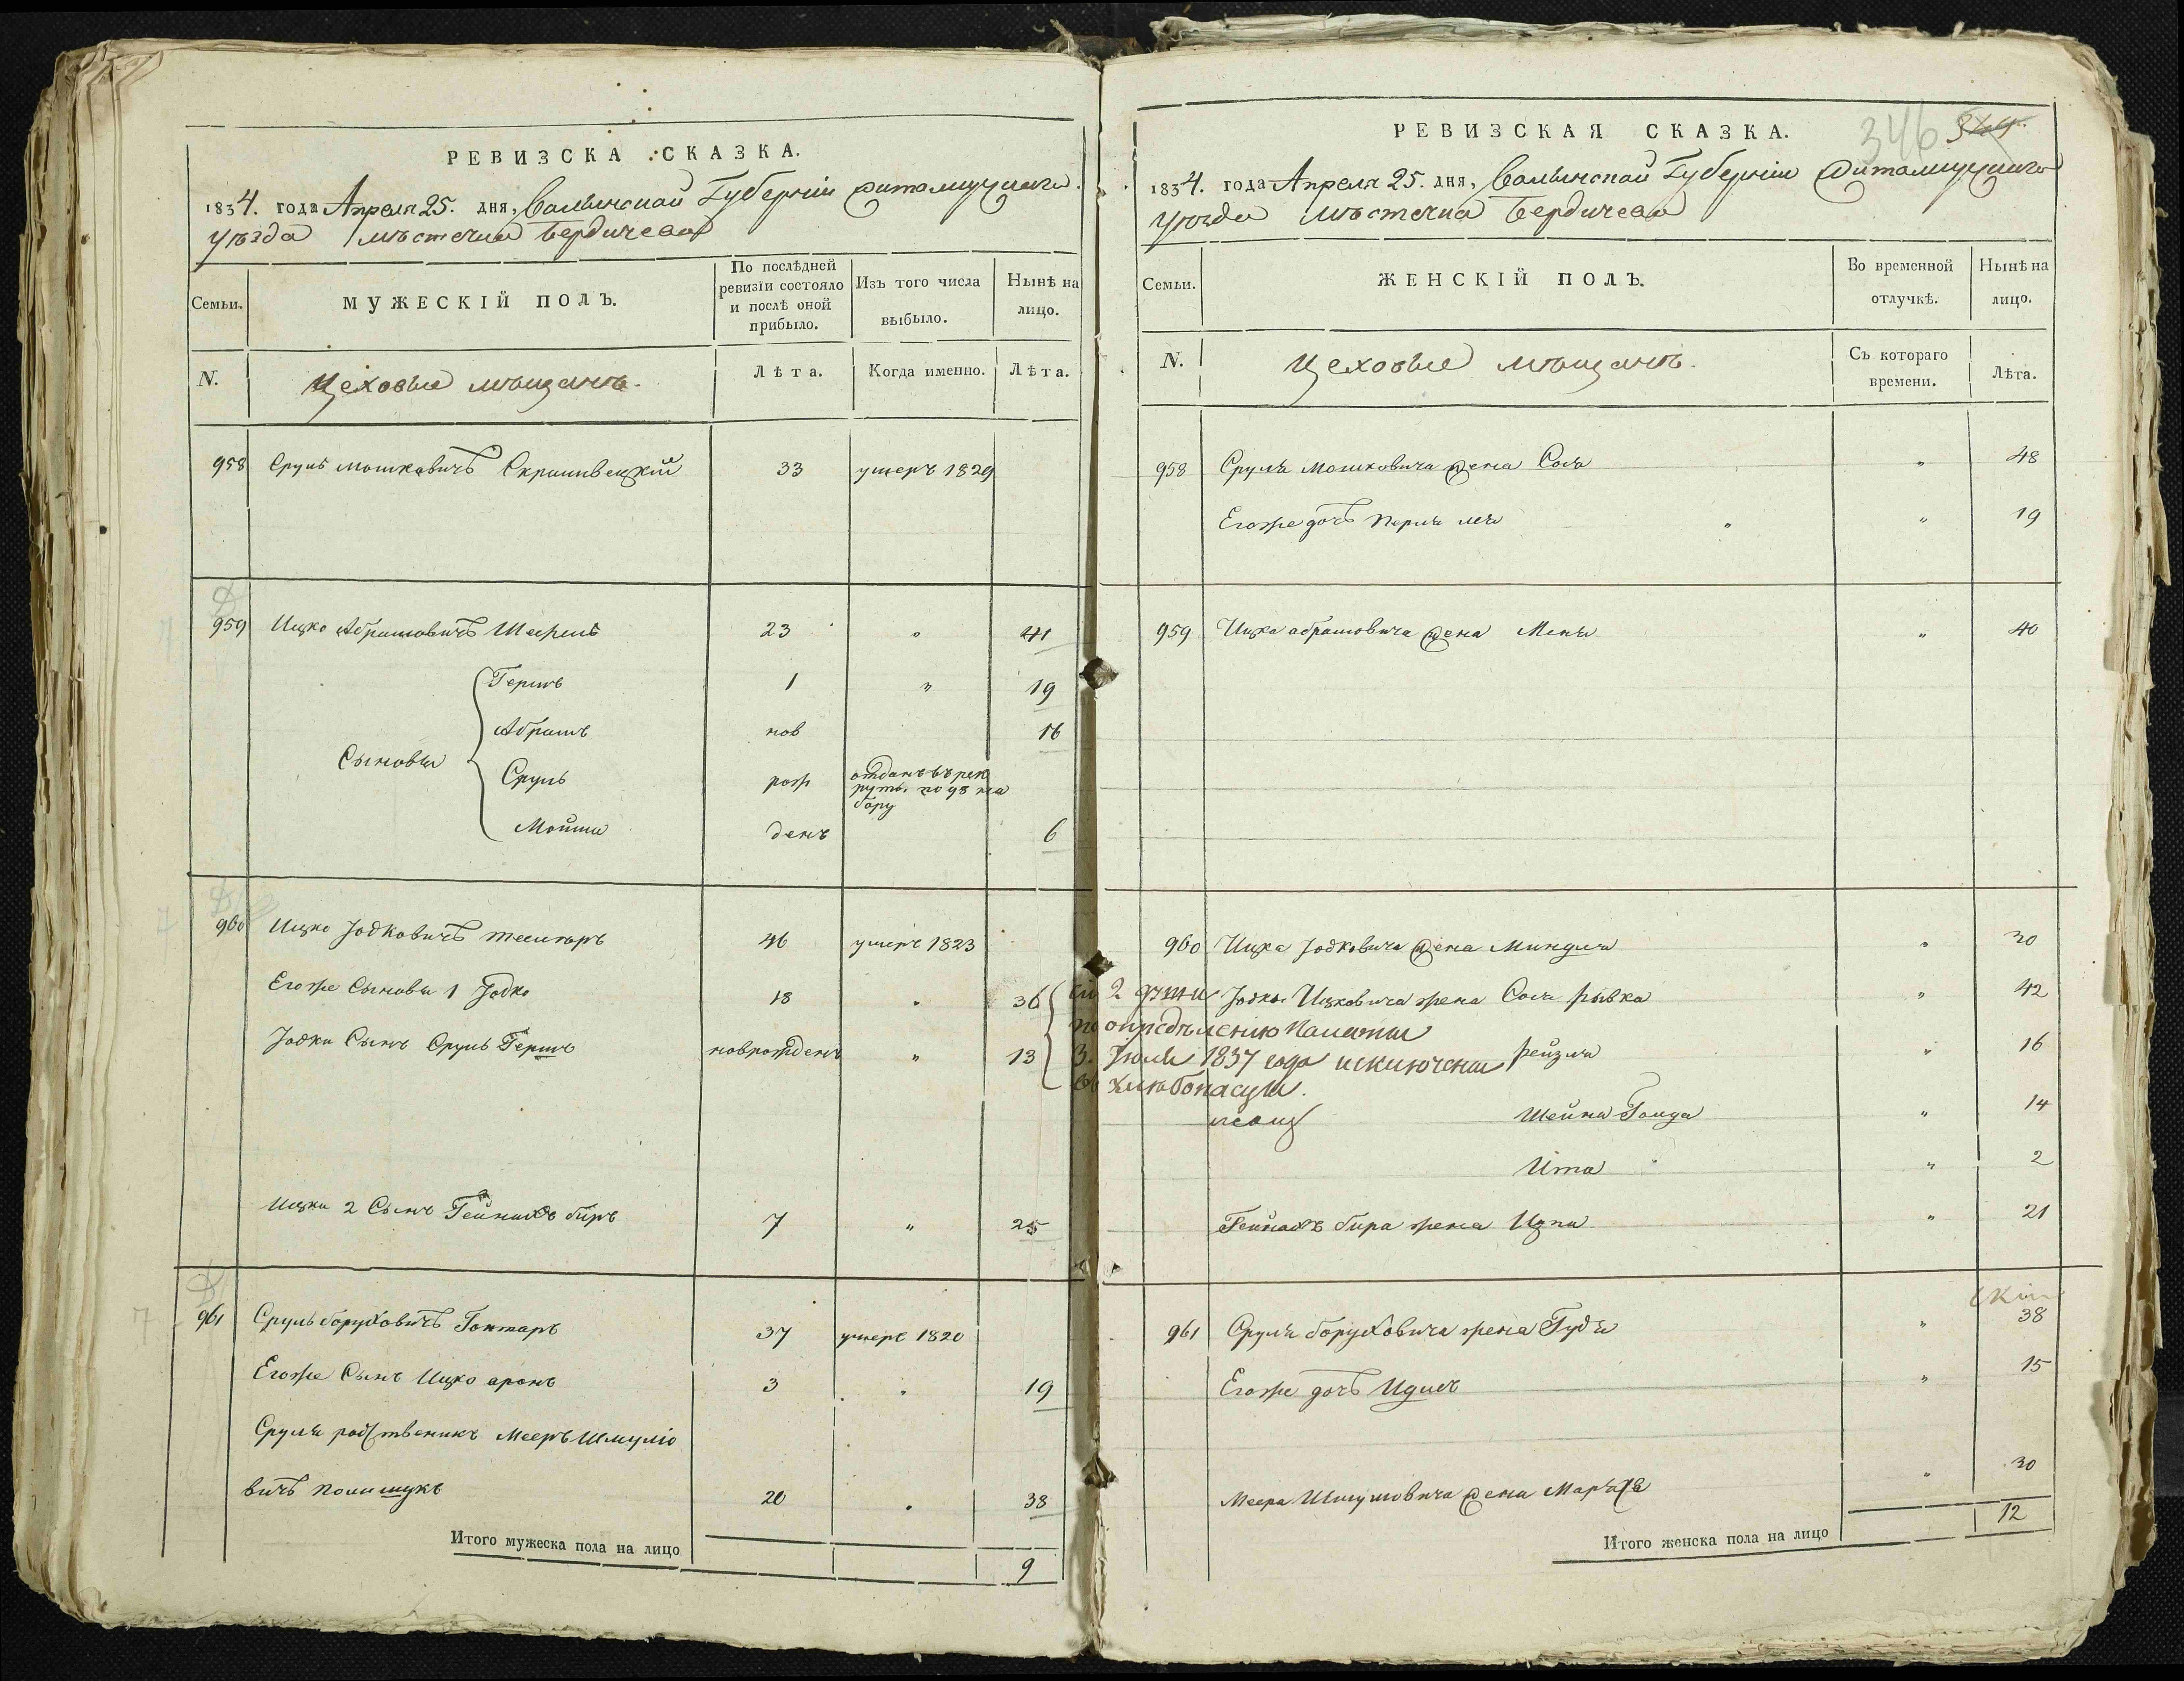 РЕВИЗСКА СКАЗКА.
1834. года Апреля 25. дня, Волынской Губернiи Житомирскаго
уѣзда мѣстечка Бердичева
Семьи.
МУЖЕСКІЙ ПОЛЪ.
По послѣдней ревизіи состояло и послѣ оной прибыло.
Изъ того числа выбыло.
Нынѣ на лицо.
N.
Цеховые мѣщанѣ.
Лѣта.
Когда именно.
Лѣта.
958 Сруль Мошковичъ 33 умеръ 1829
959 Ицко Абрамовичъ 23 " 41
Гершъ 1 " 19
Абрамъ нов 16
Сыновья
Сруль рож отданъ въ рек
руты по 98 на
бору
Мошко денъ 6
960 Ицко Іодковичъ 46 умеръ 1823
Егоже Сыновья 1 Іодко 18 " 36
Іодки Сынъ Сруль Гершъ новрожденъ " 13
Ицки 2 Сынъ Гейнахъ биръ 7 " 25
961 Сруль Боруховичъ Гонтаръ 37 умеръ 1820
Егоже Сынъ Ицко аронъ 3 " 19
Сруля родственикъ Мееръ Шмуліо
вичъ Полищукъ 20 " 38
Итого мужеска пола на лицо 9
РЕВИЗСКАЯ СКАЗКА.
346
1834. года Апреля 25. дня, Волынской Губернiи Житомирскаго
уѣзда мѣстечка Бердичева
Семьи.
ЖЕНСКІЙ ПОЛЪ.
Во временной отлучкѣ.
Нынѣ на лицо.
N.
Цеховые мѣщанѣ.
Съ котораго времени.
Лѣта.
958 Сруля Мошковича жена Сося " 48
Егоже дочь Перля " 19
959 Ицка абрамовича жена Меня " 40
960 Ицка Іодковича жена Миндля " 30
Іодки Ицковича жена Сося рывка " 42
сіи 2 души
по опредѣленію Палаты
3. Іюля 1837 года исключены
въ хлѣбопасцы.
рейзля " 16
Шейна Голда " 14
Ита " 2
Гейнахъ бира жена Ципа " 21
961 Сруля Боруховича жена Гудя " 38
Егоже дочь Идись " 15
Меера Шмулiовича жена Марьяся " 30
Итого женска пола на лицо 12